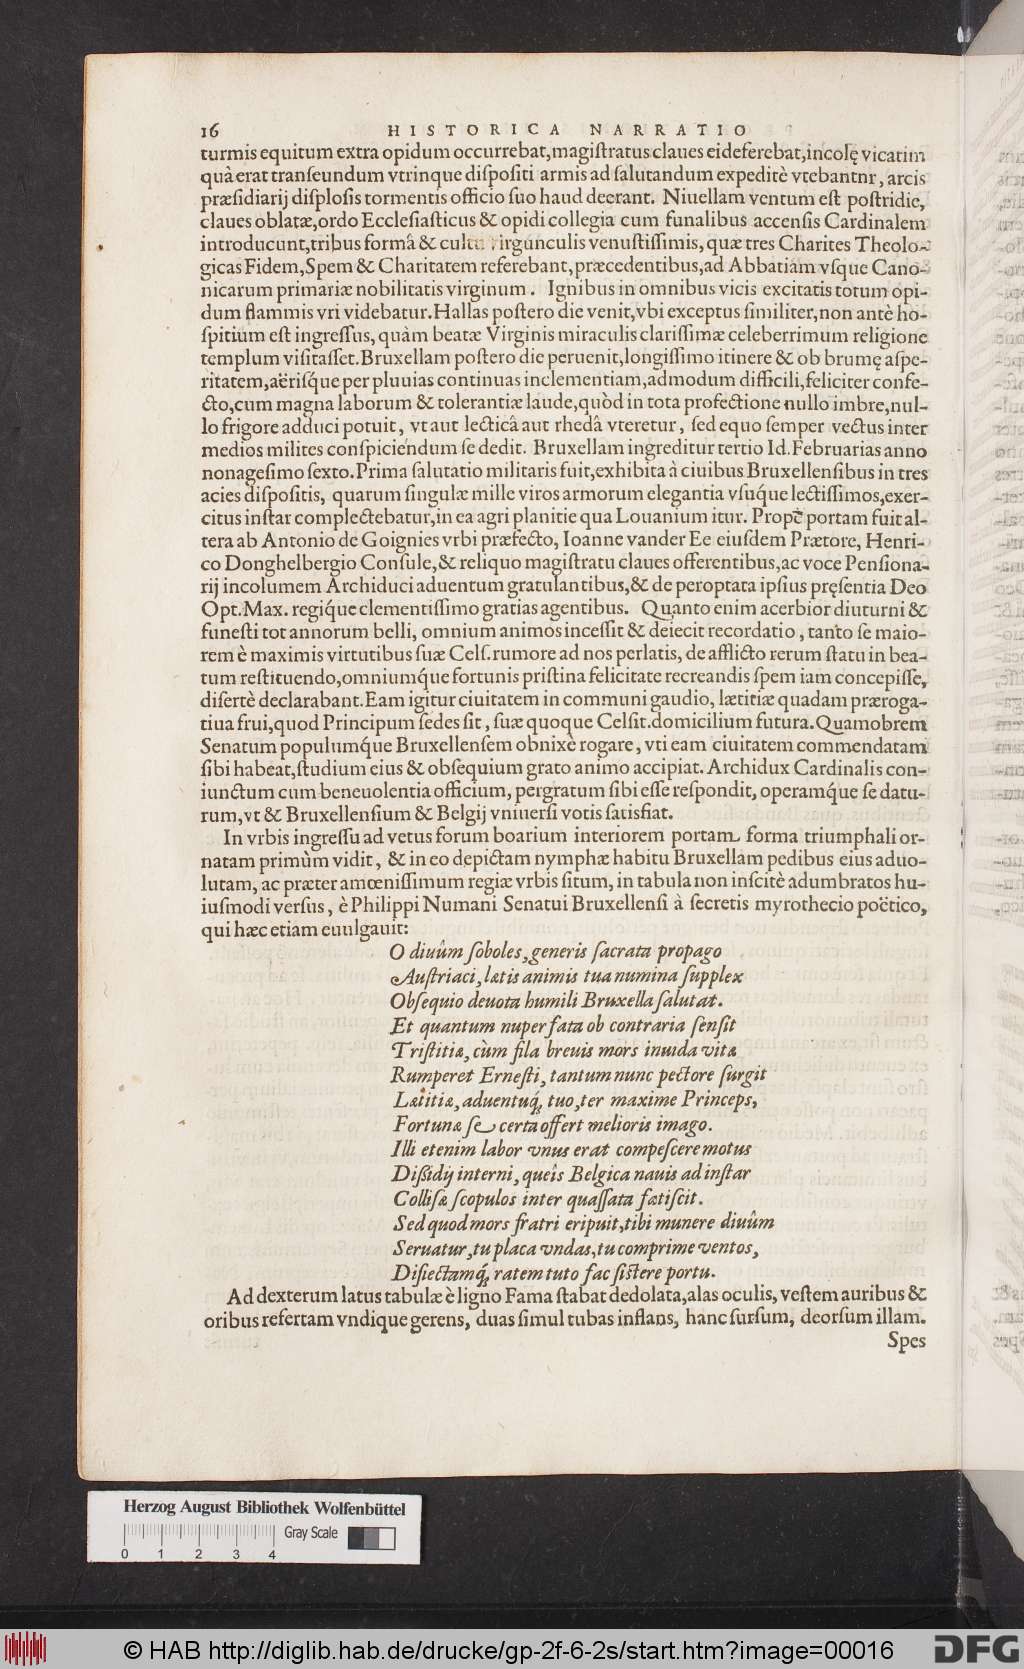 16 HISTORICA NARRATIO
turmis equitum extra opidum occurrebat, magiſtratus claues ei deferebat, incolę vicatim
quà erat tranſeundum vtrinque diſpoſiti armis ad ſalutandum expeditè vtebantnr, arcis
præſidiarij diſploſis tormentis officio ſuo haud deerant. Niuellam ventum eſt poſtridie,
claues oblatæ, ordo Eccleſiaſticus & opidi collegia cum funalibus accenſis Cardinalem
introducunt, tribus formâ & cultu virgunculis venuſtiſſimis, quæ tres Charites Theolo-
gicas Fidem, Spem & Charitatem referebant, præcedentibus, ad Abbatiam vſque Cano-
nicarum primariæ nobilitatis virginum. Ignibus in omnibus vicis excitatis totum opi-
dum flammis vri videbatur. Hallas poſtero die venit, vbi exceptus ſimiliter, non antè ho-
ſpitium eſt ingreſſus, quàm beatæ Virginis miraculis clariſſimæ celeberrimum religione
templum viſitaſſet. Bruxellam poſtero die peruenit, longiſſimo itinere & ob brumę aſpe-
ritatem, aëriſq́ue per pluuias continuas inclementiam, admodum difficili, feliciter confe-
cto, cum magna laborum & tolerantiæ laude, quòd in tota profectione nullo imbre, nul-
lo frigore adduci potuit, vt aut lecticâ aut rhedâ vteretur, ſed equo ſemper vectus inter
medios milites conſpiciendum ſe dedit. Bruxellam ingreditur tertio Id. Februarias anno
nonageſimo ſexto. Prima ſalutatio militaris fuit, exhibita à ciuibus Bruxellenſibus in tres
acies diſpoſitis, quarum ſingulæ mille viros armorum elegantia vſuq́ue lectiſſimos, exer-
citus inſtar complectebatur, in ea agri planitie qua Louanium itur. Propè portam fuit al-
tera ab Antonio de Goignies vrbi præfecto, Ioanne vander Ee eiuſdem Prætore, Henri-
co Donghelbergio Conſule, & reliquo magiſtratu claues offerentibus, ac voce Penſiona-
rij incolumem Archiduci aduentum gratulantibus, & de peroptata ipſius pręſentia Deo
Opt. Max. regiq́ue clementiſſimo gratias agentibus. Quanto enim acerbior diuturni &
funeſti tot annorum belli, omnium animos inceſſit & deiecit recordatio, tanto ſe maio-
rem è maximis virtutibus ſuæ Celſ. rumore ad nos perlatis, de afflicto rerum ſtatu in bea-
tum reſtituendo, omniumq́ue fortunis priſtina felicitate recreandis ſpem iam concepiſſe,
diſertè declarabant. Eam igitur ciuitatem in communi gaudio, lætitiæ quadam præroga-
tiua frui, quod Principum ſedes ſit, ſuæ quoque Celſit. domicilium futura. Quamobrem
Senatum populumq́ue Bruxellenſem obnixè rogare, vti eam ciuitatem commendatam
ſibi habeat, ſtudium eius & obſequium grato animo accipiat. Archidux Cardinalis con-
iunctum cum beneuolentia officium, pergratum ſibi eſſe reſpondit, operamq́ue ſe datu-
rum, vt & Bruxellenſium & Belgij vniuerſi votis ſatisfiat.
In vrbis ingreſſu ad vetus forum boarium interiorem portam forma triumphali or-
natam primùm vidit, & in eo depictam nymphæ habitu Bruxellam pedibus eius aduo-
lutam, ac præter amœniſſimum regiæ vrbis ſitum, in tabula non inſcitè adumbratos hu-
iuſmodi verſus, è Philippi Numani Senatui Bruxellenſi à ſecretis myrothecio poëtico,
qui hæc etiam euulgauit:
O diuûm ſoboles, generis ſacrata propago
Auſtriaci, lætis animis tua numina ſupplex
Obſequio deuota humili Bruxella ſalutat.
Et quantum nuper fata ob contraria ſenſit
Triſtitiæ, cùm fila breuis mors inuida vitæ
Rumperet Erneſti, tantum nunc pectore ſurgit
Lætitiæ, aduentuq́; tuo, ter maxime Princeps,
Fortunæ ſe certa offert melioris imago.
Illi etenim labor vnus erat compeſcere motus
Diſſidij interni, queîs Belgica nauis ad inſtar
Colliſæ ſcopulos inter quaſſata fatiſcit.
Sed quod mors fratri eripuit, tibi munere diuûm
Seruatur, tu placa vndas, tu comprime ventos,
Diſiectamq́; ratem tuto fac ſiſtere portu.
Ad dexterum latus tabulæ è ligno Fama ſtabat dedolata, alas oculis, veſtem auribus &
oribus refertam vndique gerens, duas ſimul tubas inflans, hanc ſurſum, deorſum illam.
Spes
Herzog August Bibliothek Wolfenbüttel
Gray Scale
0 1 2 3 4
© HAB http://diglib.hab.de/drucke/gp-2f-6-2s/start.htm?image=00016
DFG